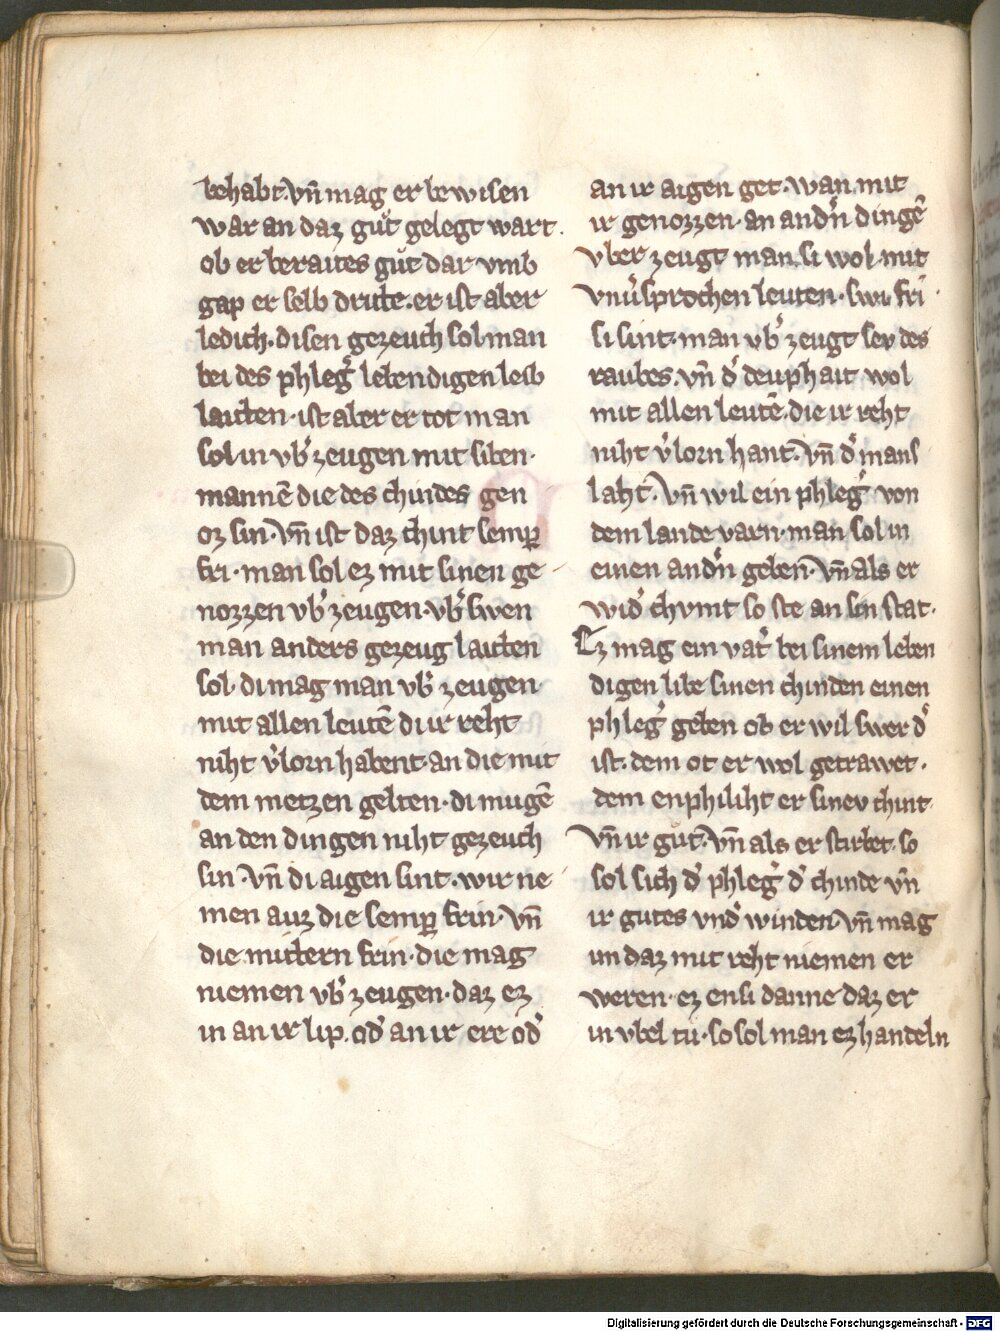 behabt. vn̄ mag er bewisen
war an daz gůt gelegt wart.
ob er beraites gůt dar vmb
gap er selb dritte. er ist aber
ledich. disen gezeuch sol man
bei des phleg̾ lebendigen leib
laitten. ist aber er tot man
sol in vb̾ zeugen mit siben.
mannē die des chindes gen
oz sin. vn̄ ist daz chint semp̱
fri. man sol ez mit sinen ge
nozzen vb̾ zeugen. vb̾ swen
man anders gezeug laitten
sol. di mag man vb̾ zeugen
mit allen leutē di ir reht
niht v̾lorn habent. an die mit
dem metzen gelten. di mugē
an den dingen niht gezeuch
sin. vn̄ di aigen sint. wir ne
men auz die semp̱ frin. vn̄
die mittern frin. die mag
niemen vb̾ zeugen. daz ez
in an ir lip. od̾ an ir ere od̾
an ir aigen get. wan mit
ir genozzen. an and̾n dingē
vber zeugt man si wol mit
vnv̾sprochen leuten. swi fri
si sint. man vb̾ zeugt sev des
raubes. vn̄ d̾ deuphait wol
mit allen leutē. die ir reht
niht v̾lorn hant. vn̄ d̾ mans
laht. vn̄ wil ein phleg̾ von
dem lande varn. man sol in
einen and̾n geben. vn̄ als er
wid̾ chvmt so ste an sin stat.
Ez mag ein vat̾ bei sinem leben
digen libe sinen chinden einen
phleg̾ geben ob er wil swer d̾
ist. dem ot er wol getrawet.
dem enphiliht er sinev chint
vn̄ ir gůt. vn̄ als er stirbet. so
sol sich d̾ phleg̾ d̾ chinde vn̄
ir gutes vnd̾ winden. vn̄ mag
im daz mit reht niemen er
weren. ez ensi danne daz er
in vbel tů. so sol man ez handeln
Digitalisierung gefördert durch die Deutsche Forschungsgemeinschaft - DFG